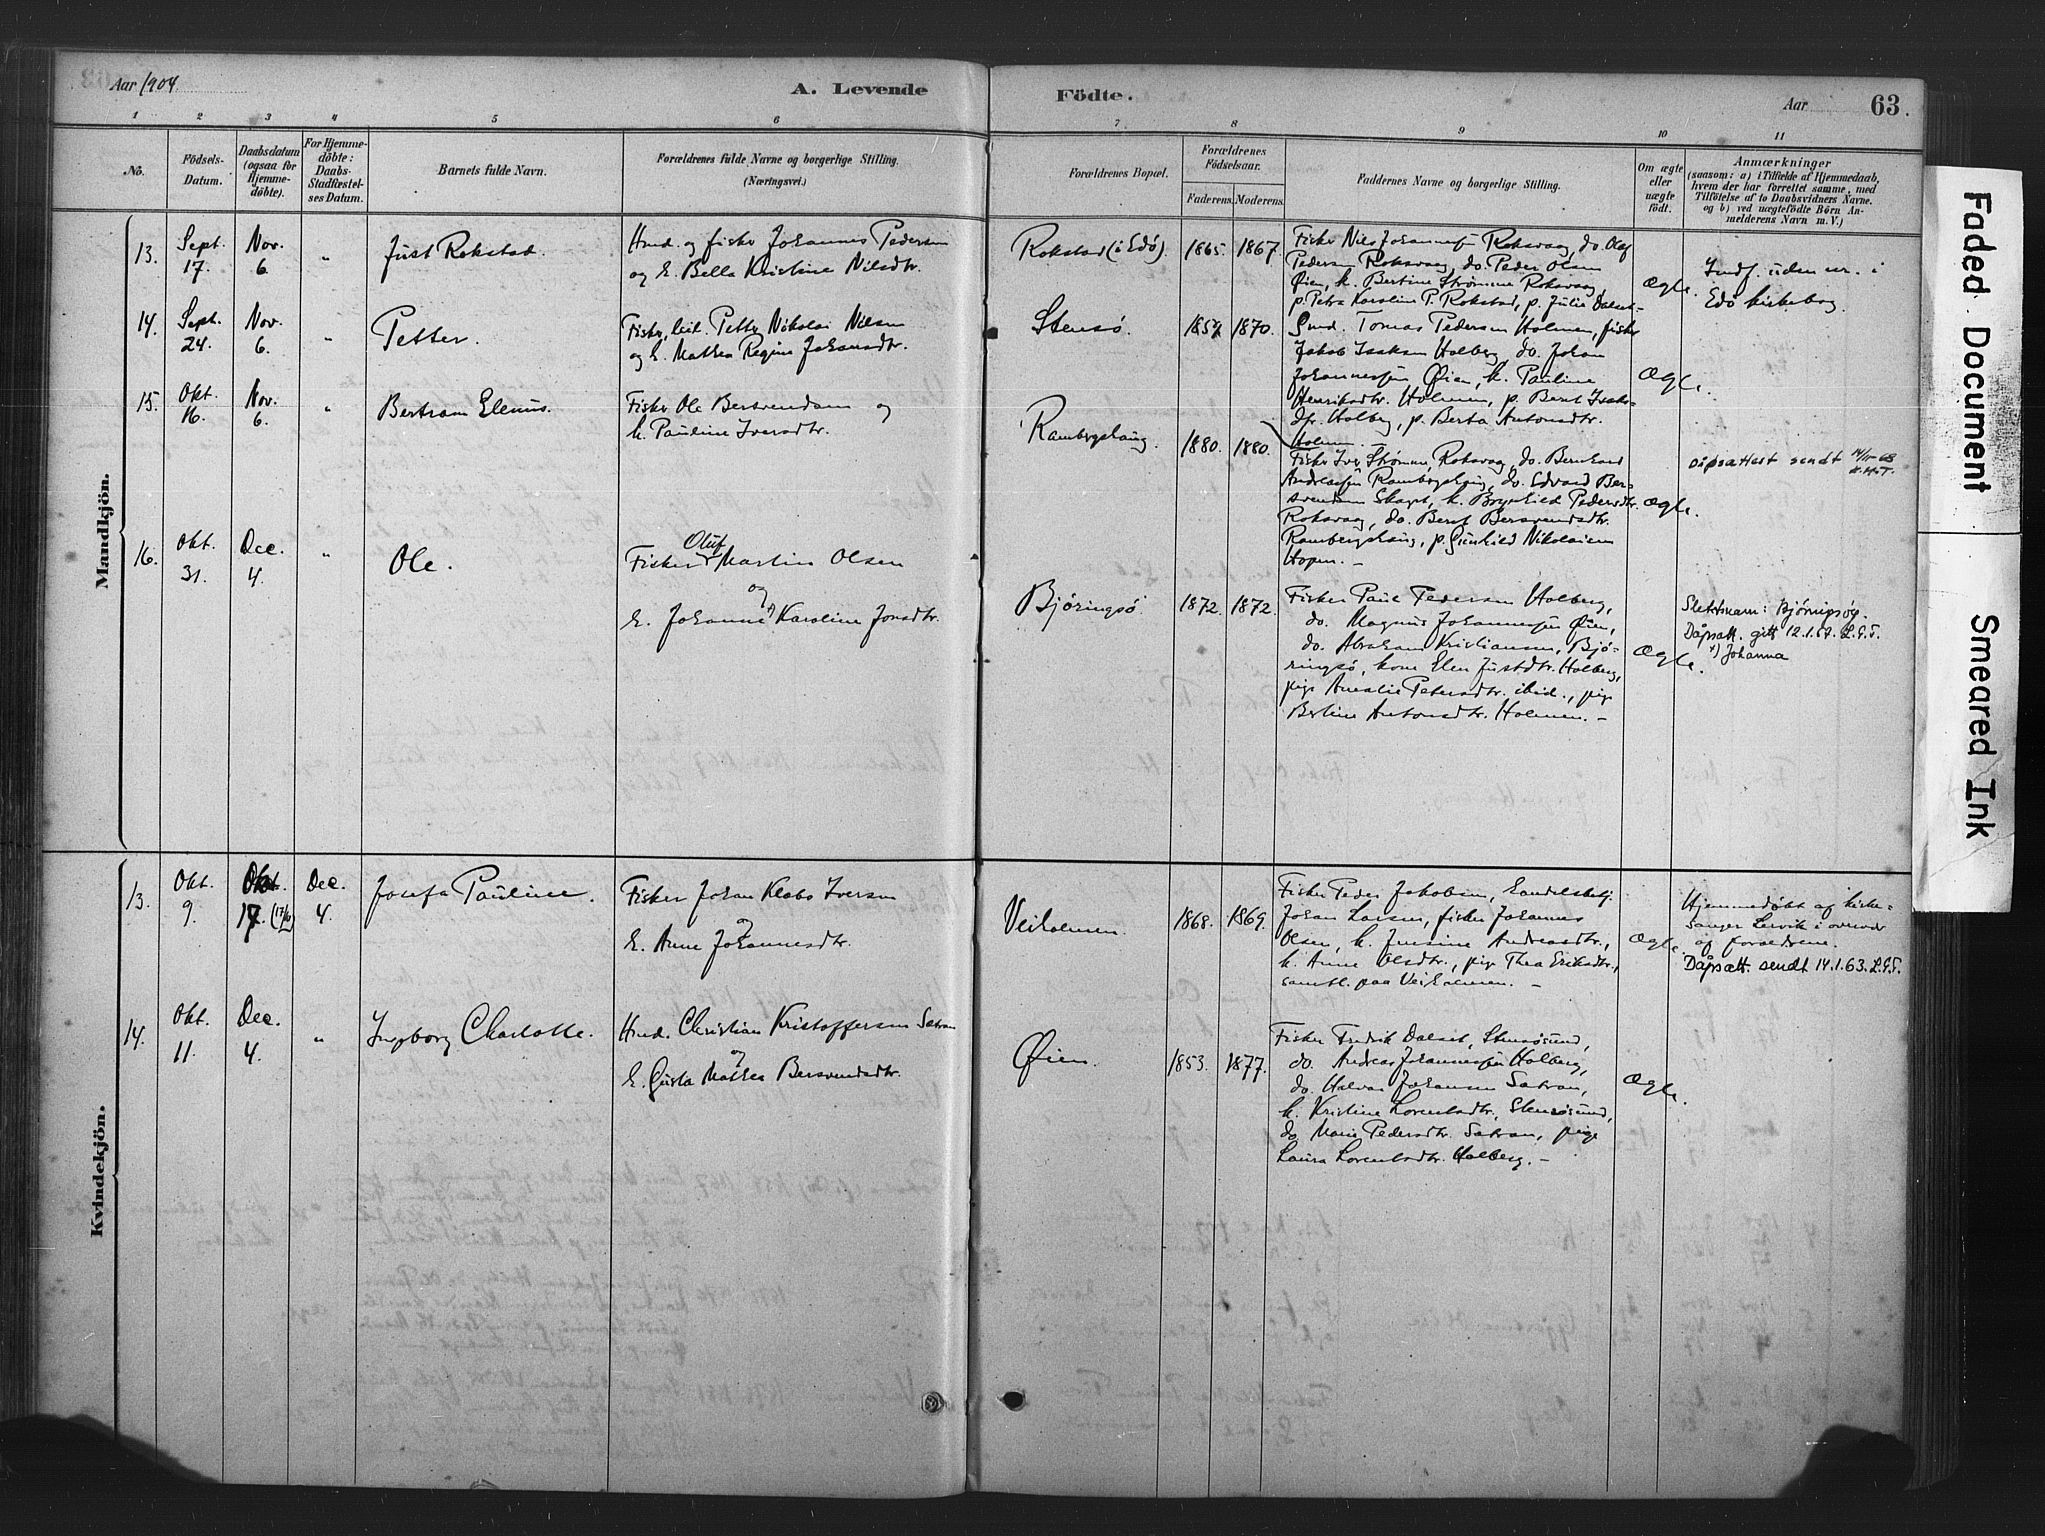 Aar 1904
A. Levende
Födte.
Aar
63.
1 2 3 4 5 6 7 8 9 10 11
No.
Födsels-
Datum.
Daabsdatum
(ogsaa for
Hjemme-
döbte).
For Hjemme-
döbte:
Daabs-
Stadfæstel-
ses Datum.
Barnets fulde Navn.
Forældrenes fulde Navne og borgerlige Stilling.
(Næringsvei.)
Forældrenes Bopæl.
Forældrenes
Födselsaar.
Faderens. Moderens.
Faddernes Navne og borgerlige Stilling.
Om ægte
eller
uægte
födt.
Anmærkninger
(saasom: a) i Tilfælde af Hjemmedaab,
hvem der har forrettet samme, med
Tilföielse af to Daabsvidners Navne.
og b) ved uægtefödte Börn An-
melderens Navn m. V.)
Mandkjön.
13.
Sept.
17.
Nov.
6
"
Just Rokstad.
Hmd. og fisker Johannes Pedersen
og h. Bella Kristine Nilsdtr.
Rokstad (i Edö).
1865. 1867.
Fisker Nils Johannessen Roksvaag, do. Olaf
Pedersen Roksvaag, do. Peder Olsen
Øien, k. Bertine Strømme Roksvaag,
p. Petra Karoline P. Rokstad, p. Julie Dalset.
Ægte.
Indf. uden nr. i
Edö kirkebog.
14.
Sept.
24.
Nov.
6.
"
Petter.
Fisker, Petter Nikolai Nilsen
og h. Mathea Regine Johansdtr.
Stensö.
1857 1870.
Tomas Pedersen Holmen, fisker
Jakob Isaksen Holberg, do. Johan
Johannessen Øien, k. Pauline
Henriksdtr. Holmen, p. Berit Isaks-
dtr. Holberg, p. Berta Antonsdtr.
Holmen.
Ægte.
15.
Okt.
16.
Nov.
6.
"
Bertram Elenius.
Fisker Ole Bersvendsen og
h. Pauline Iversdtr.
Rambergshaug.
1880. 1880.
Fisker Iver Strømmen, Roksvaag, do. Bernhard
Andreassen Rambergshaug, do. Edvard Ber-
svendsen Skaget, k. Brynhild Pedersdtr.
Roksvaag, do. Berit Bersvendsdtr.
Rambergshaug, p. Gunhild Nikolaisen
Hopen. –
Ægte.
Dåpsattest sendt 14/11-68
K.H.T.
16.
Okt.
31.
Dec.
4.
"
Ole.
Oluf
Fisker Martin Olsen
og
h. Johanne x) Karoline Jonsdtr.
Björingsö.
1872. 1872.
Fisker Paul Pedersen Holberg,
do. Magnus Johannessen Øien,
do. Abraham Kristiansen, Bjö-
ringsö, kone Elen Justdtr. Holberg,
pige Amalie Petersdtr. ibid., pige
Berline Antonsdtr. Holmen. –
Ægte.
Slektsnam: Bjørnipsøy.
Dåpsatt. gitt 12.1.67. L.G.S.
x) Johanna
Kvindekjön.
13.
Okt.
9.
Okt.
17. (17/10)
Dec.
4.
Josefa Pauline.
Fisker Johan Klabo Iversen
og
h. Anne Johannesdtr.
Veiholmen.
1868. 1869.
Fisker Peder Jakobsen, handelsbetj.
Johan Larsen, fisker Johannes
Olsen, k. Jensine Andreasdtr.,
k. Anne Olsdtr., pige Thea Eriksdtr.,
samtl. paa Veiholmen. –
Ægte.
Hjemmedöbt af kirke-
sanger Lervik i overvær
af forældrene.
Dåpsatt. sendt 14.1.63. L.G.S.
14.
Okt.
11.
Dec.
4.
"
Ingborg Charlotte.
Hmd. Christian Kristoffersen Sætran
og
h. Gusta Mathea Bersvendsdtr.
Øien.
1853. 1877.
Fisker Fredrik Dalset, Stensösund,
do. Andreas Johannessen Holberg,
do. Halvor Johansen Sætran,
k. Kristine Lorentsdtr., Stensösund,
do. Marie Pedersdtr. Sætran, pige
Laura Lorentsdtr. Holberg. –
Ægte.
Faded Document
Smeared Ink